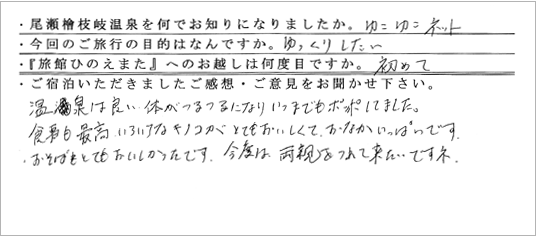 ・尾瀬檜枝岐温泉を何でお知りになりましたか。ゆこゆこネット
・今回のご旅行の目的はなんですか。ゆっくりしたい
・『旅館ひのえまた』へのお越しは何度目ですか。初めて
・ご宿泊いただきましたご感想・ご意見をお聞かせ下さい。
温泉は良い体がつるつるになりいつまでもポッポしてました。
食事も最高いろいろなキノコがとてもおいしくて、おなかいっぱいです。
・おそばもとてもおいしかったです。今度は両親をつれて来たいですネ.